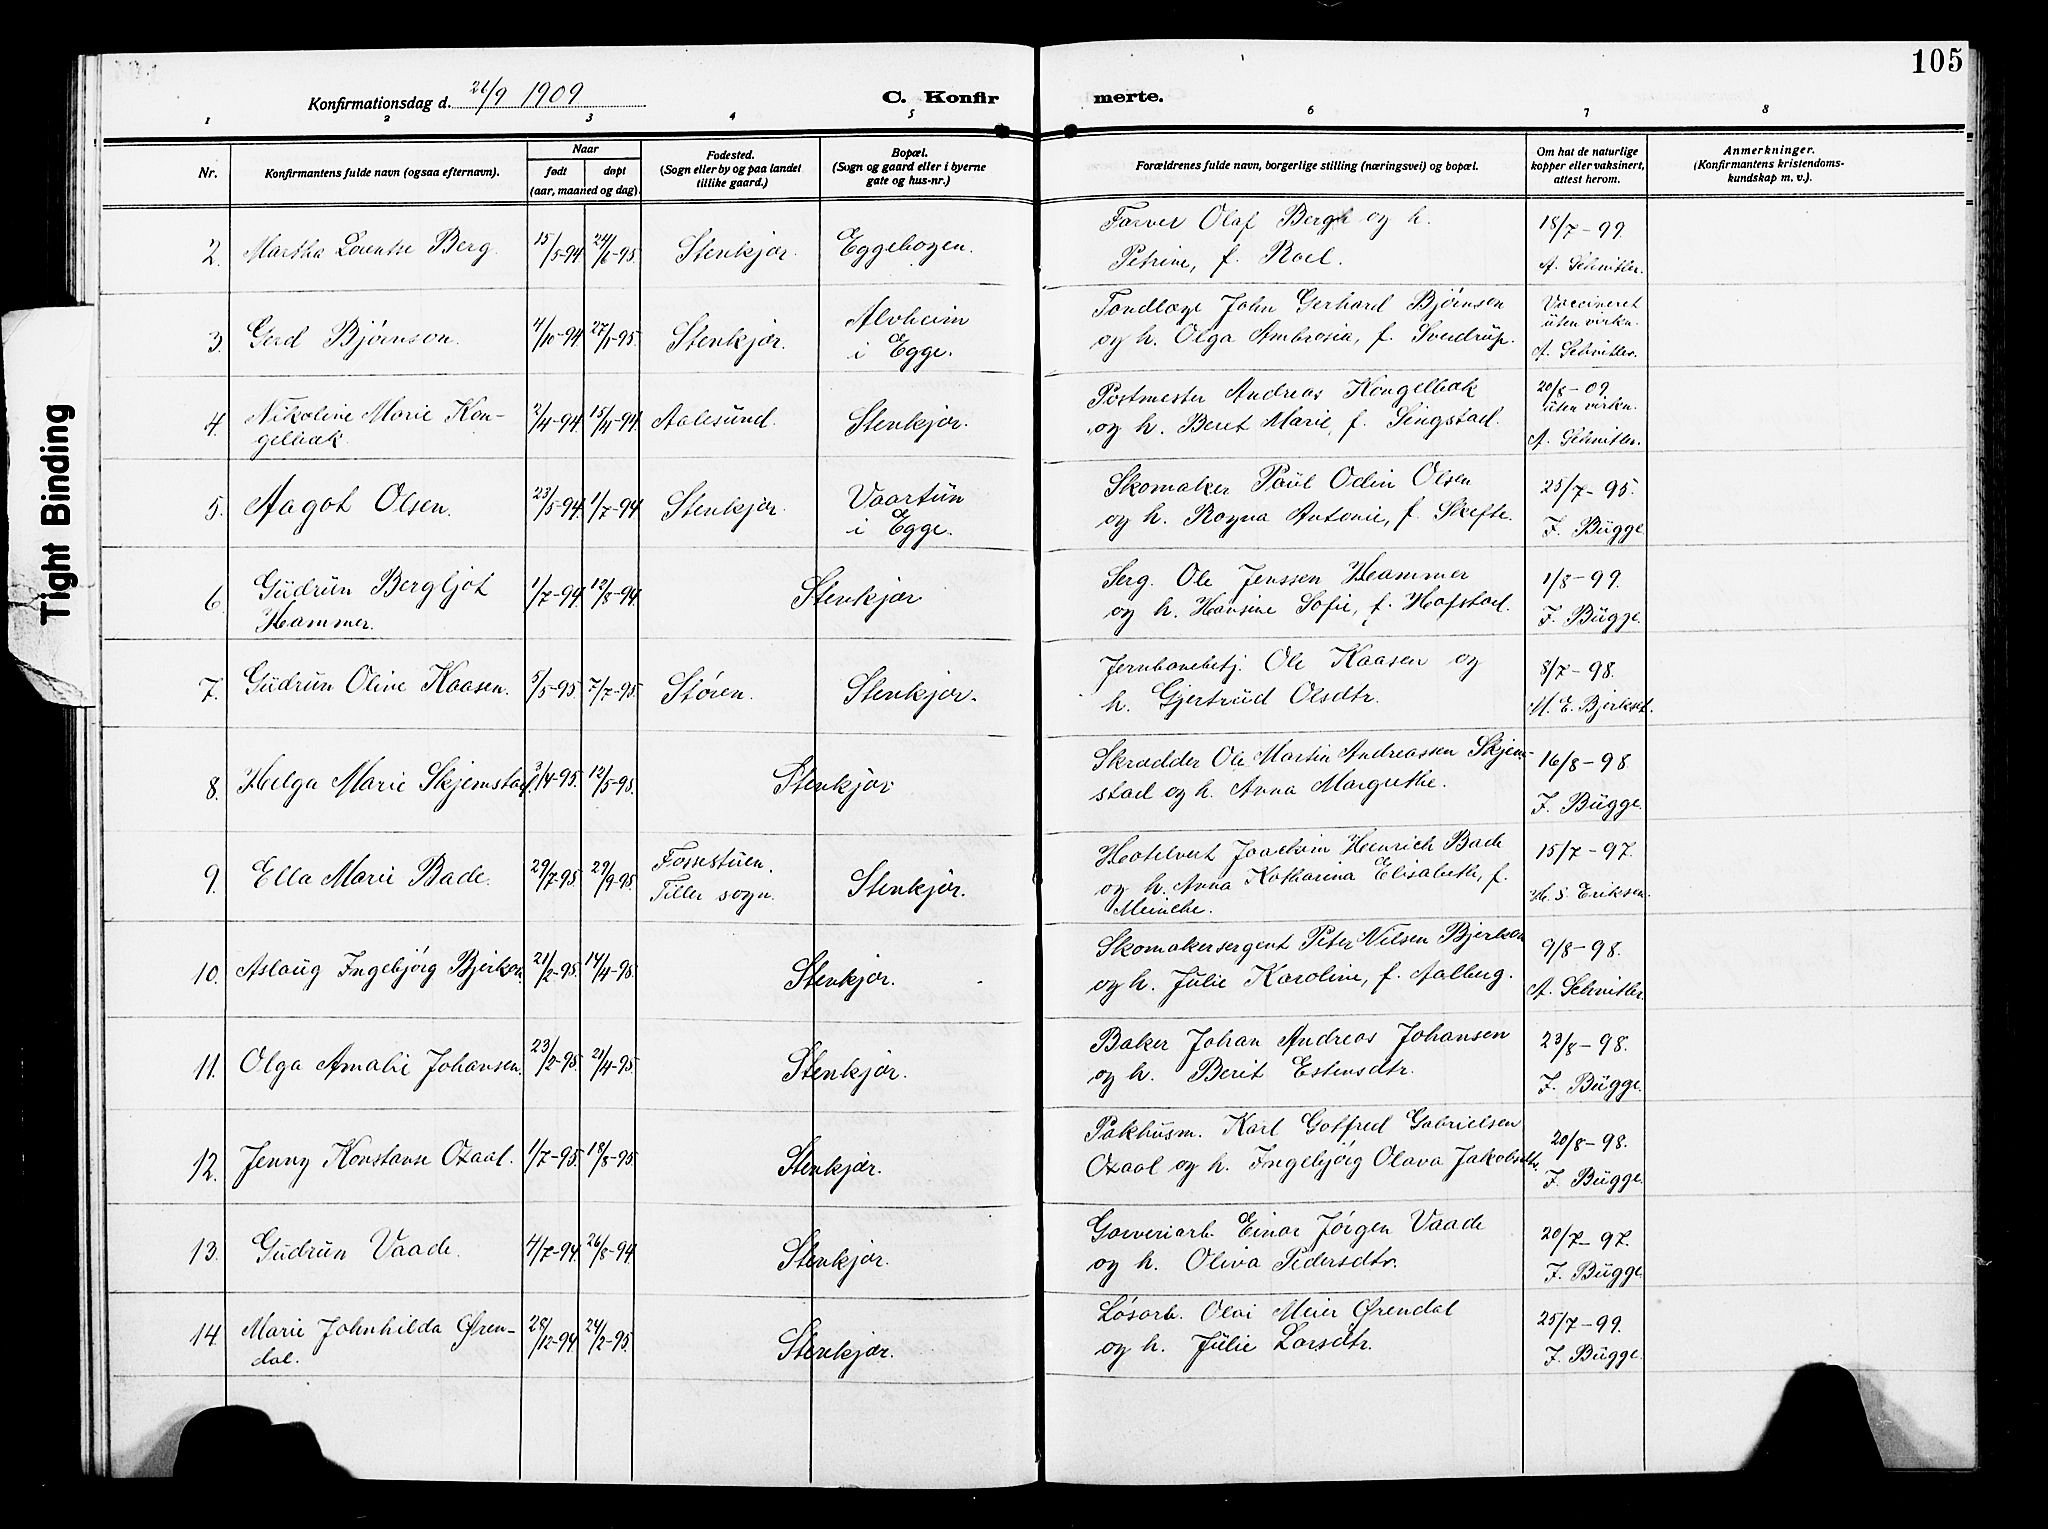 105
Konfirmationsdag d. 26/9 1909
C. Konfir merte.
1 2 3 4 5 6 7 8
Nr.
Konfirmantens fulde navn (ogsaa efternavn).
Naar
født døpt
(aar, maaned og dag).
Fødested.
(Sogn eller by og paa landet
tillike gaard.)
Bopæl.
(Sogn og gaard eller i byerne
gate og hus-nr.)
Forældrenes fulde navn, borgerlige stilling (næringsvei) og bopæl.
Om hat de naturlige
kopper eller vaksinert,
attest herom.
Anmerkninger.
(Konfirmantens kristendoms-
kundskap m. v.)
Tight Binding
2. Martha Lorentse Berg. 15/5-94 24/6-95. Stenkjær. Eggebogen. Farver Olaf Bergh og h. 18/7-99.
Petrine, f. Roel. A. Schnitler.
3. Gerd Bjørnson. 4/10-94 27/1-95. Stenkjær. Alvheim Tandlæge John Gerhard Bjørnson Vaccineret
i Egge. og h. Olga Ambrosia, f. Sverdrup. uten virkn.
A. Schnitler.
4. Nikoline Marie Kon- 2/4-94. 15/4-94. Aalesund. Stenkjær. Postmester Andreas Kongelbak 20/8-09.
gelbak. og h. Beret Marie, f. Singstad. uten virkn.
A. Schnitler.
5. Aagot Olsen. 23/5-94. 1/7-94 Stenkjær. Vaartun Skomaker Paul Odin Olsen 25/7-95.
i Egge. og h. Ragna Antonie, f. Skefte. F. Bugge.
6. Gudrun Bergljot 1/7-94. 12/8-94. Stenkjær Serg. Ole Jenssen Hammer 1/8-99.
Hammer. og h. Hansine Sofie, f. Hofstad. F. Bugge.
7. Gudrun Oline Kaasen. 5/5-95 7/7-95. Støren. Stenkjær. Jernbanebetj. Ole Kaasen og 8/7-98.
h. Gjertrud Olsdtr. M. E. Bjerkset.
8. Helga Marie Skjemstad. 3/4-95. 12/5-95. Stenkjær Skrædder Ole Martin Andreassen Skjem- 16/8-98
stad og h. Anna Margrethe. F. Bugge.
9. Ella Marie Bade. 29/7-95 29/9-95. Fossestuen. Stenkjær. Hotelvert Joachim Heinrich Bade 15/7-97.
Tiller sogn. og h. Anna Katharina Elisabeth, f. H. S. Eriksen.
Meincke.
10. Aslaug Ingebjörg Bjerkan. 21/2-95. 14/4-95. Stenkjær. Skomakersergent Peter Nilsen Bjerkan 9/8-98.
og h. Julie Karoline, f. Aalberg. A. Schnitler.
11. Olga Amalie Johansen. 23/2-95. 21/4-95. Stenkjær. Baker Johan Andreas Johansen 23/8-98.
og h. Berit Estensdtr. F. Bugge.
12. Jenny Konstanse Oxaal. 1/7-95. 18/8-95. Stenkjær. Pakhusm. Karl Gotfred Gabrielsen 20/8-98.
Oxaal og h. Ingebjörg Olava Jakobsdtr. F. Bugge.
13. Gudrun Vaade. 4/7-94. 26/8-94 Stenkjær. Garveriarb. Einar Jørgen Vaade 20/7-97.
og h. Oliva Pedersdtr. F. Bugge
14. Marie Johnhilda Øren- 28/12-94 24/2-95. Stenkjær. Løsarb. Olai Meier Ørendal 25/7-99.
dal. og h. Julie Larsdtr. F. Bugge.